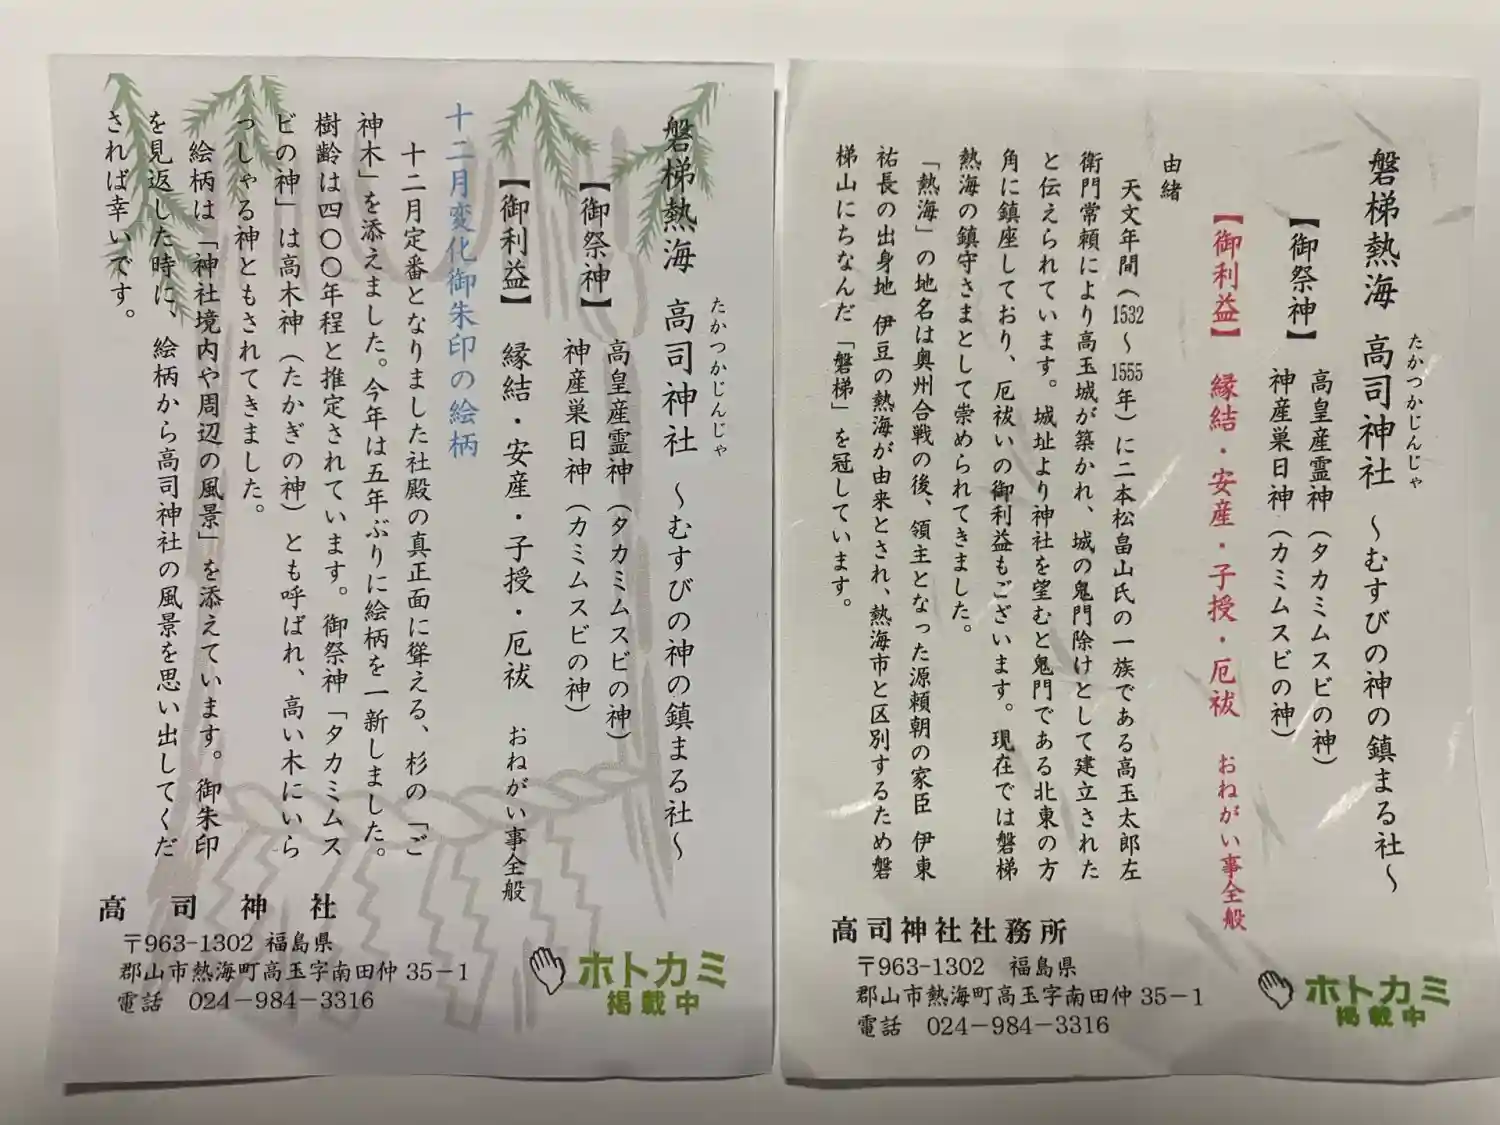 磐梯熱海 高司神社 ～むすびの神の鎮まる社～
たかつかじんじゃ
【御祭神】 高皇産霊神（タカミムスビの神）
神産巣日神（カミムスビの神）
【御利益】 縁結・安産・子授・厄祓 おねがい事全般
十二月変化御朱印の絵柄
十二月定番となりました社殿の真正面に聳える、杉の「ご
神木」を添えました。今年は五年ぶりに絵柄を一新しました。
樹齢は四〇〇年程と推定されています。御祭神「タカミムス
ビの神」は高木神（たかぎの神）とも呼ばれ、高い木にいら
っしゃる神ともされてきました。
絵柄は「神社境内や周辺の風景」を添えています。御朱印
を見返した時に、絵柄から高司神社の風景を思い出してくだ
されば幸いです。
高司神社
〒963-1302 福島県
郡山市熱海町高玉字南田仲35－1
電話 024－984－3316
ホトカミ
掲載中
磐梯熱海 高司神社 ～むすびの神の鎮まる社～
たかつかじんじゃ
【御祭神】 高皇産霊神（タカミムスビの神）
神産巣日神（カミムスビの神）
【御利益】 縁結・安産・子授・厄祓 おねがい事全般
由緒
天文年間（1532～1555年）に二本松畠山氏の一族である高玉太郎左
衛門常頼により高玉城が築かれ、城の鬼門除けとして建立された
と伝えられています。城址より神社を望むと鬼門である北東の方
角に鎮座しており、厄祓いの御利益もございます。現在では磐梯
熱海の鎮守さまとして崇められてきました。
「熱海」の地名は奥州合戦の後、領主となった源頼朝の家臣 伊東
祐長の出身地 伊豆の熱海が由来とされ、熱海市と区別するため磐
梯山にちなんだ「磐梯」を冠しています。
高司神社社務所
〒963-1302 福島県
郡山市熱海町高玉字南田仲35－1
電話 024－984－3316
ホトカミ
掲載中